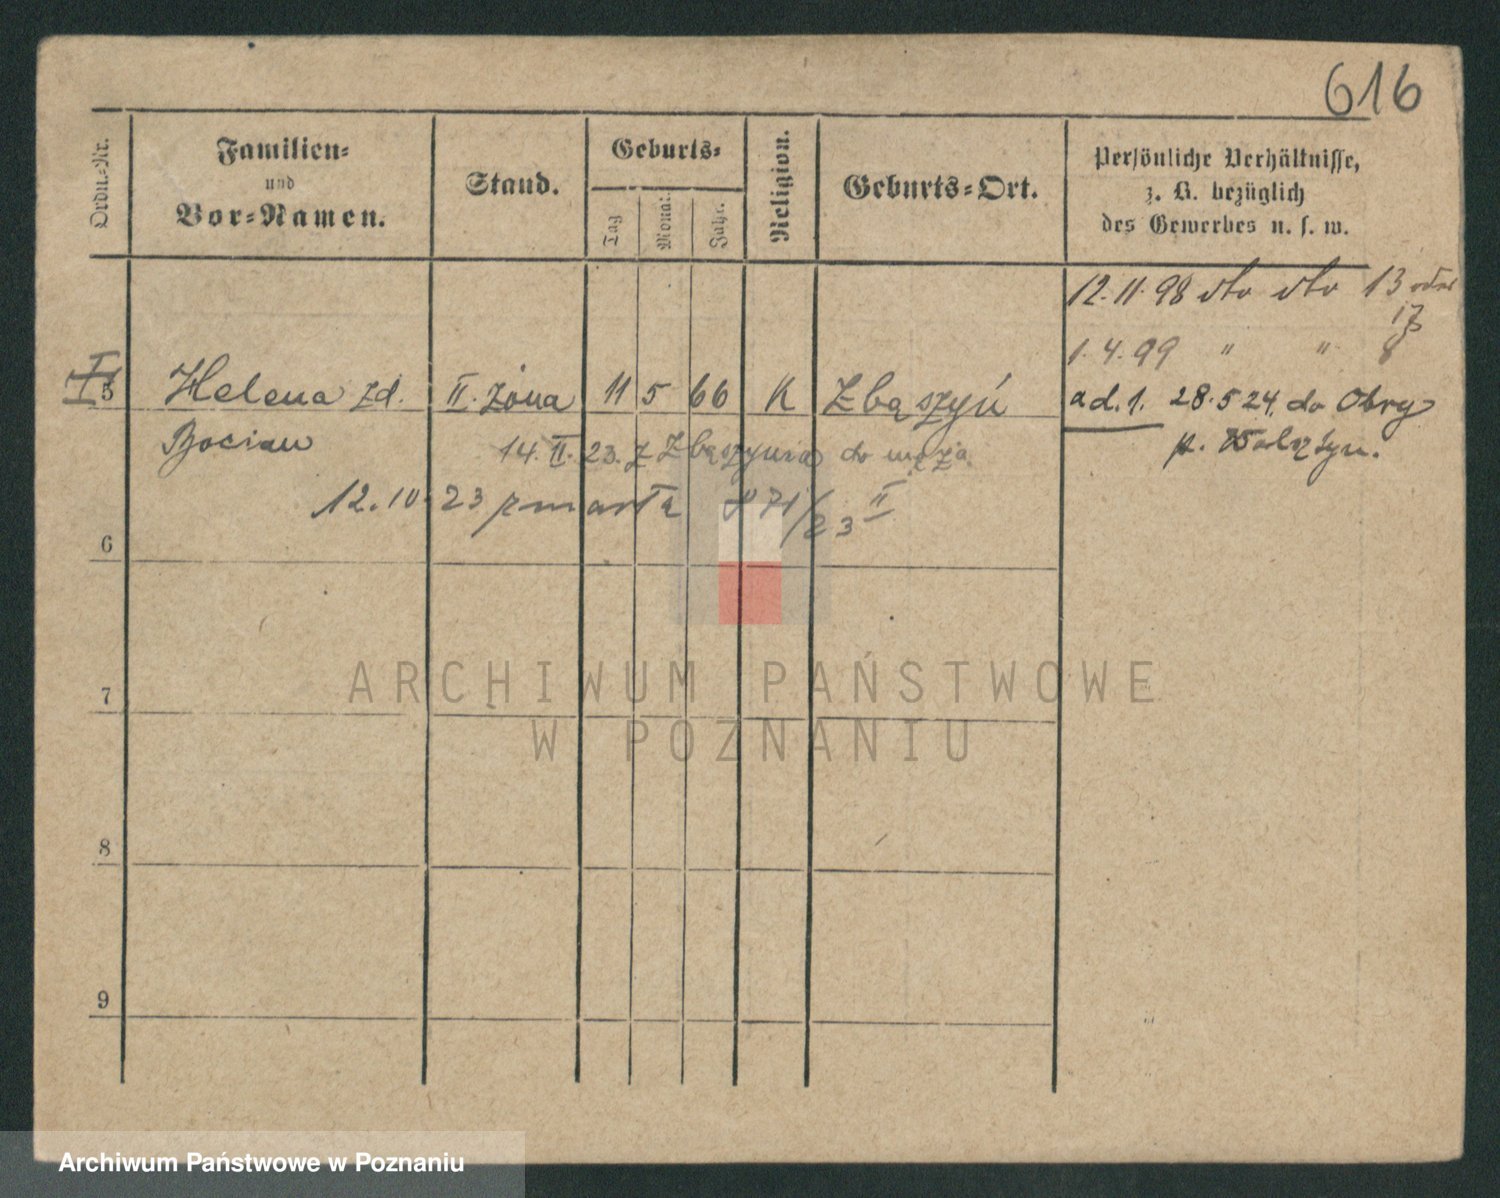 616
Ordn.-Nr.
Familien-
und
Vor-Namen.
Stand.
Geburts-
Tag
Monat
Jahr.
Religion.
Geburts-Ort.
Persönliche Verhältnisse,
z. B. bezüglich
des Gewerbes u. s. w.
12.11.98 dto dto 13 oder
17
1.4.99 " " 8
I
5 Helena zd. II. żona 11 5 66 K Zbąszyń
ad. 1. 28.5 24. do Obry
Bocian
p. Wolsztyn.
14. II. 23. z Zbąszynia do męża
12.10.23 zmarła 871/23 II
6
7
8
9
ARCHIWUM PAŃSTWOWE
W POZNANIU
Archiwum Państwowe w Poznaniu